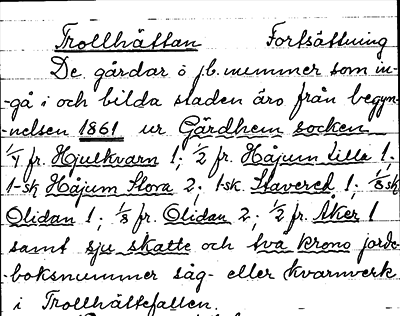 Trollhättan Fortsättning
De gårdar o jb. nummer som in-
-gå i och bilda staden äro från begyn-
-nelsen 1861 ur Gärdhem socken
1/4 fr. Hjulkvarn 1; 1/2 fr. Håjum Lilla 1;
1-sk Håjum Stora 2; 1sk. Stavered 1; 1/8 sk
Olidan 1; 1/8 fr. Olidan 2; 1/2 fr. Åker 1
samt sju skatte och tva krono jorde-
-boksnummer såg- eller kvarnverk
i Trollhättefallen.